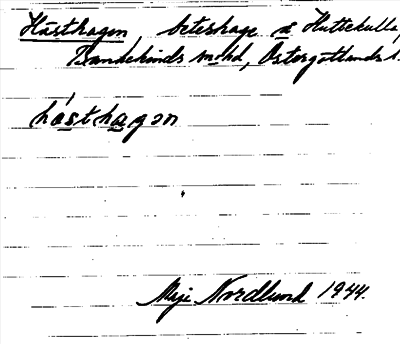 Hästhagen, beteshage å Huttekulla,
Bankekinds sn o hd, Östergötlands l.
hàsthagən
Maj Nordlund 1944.